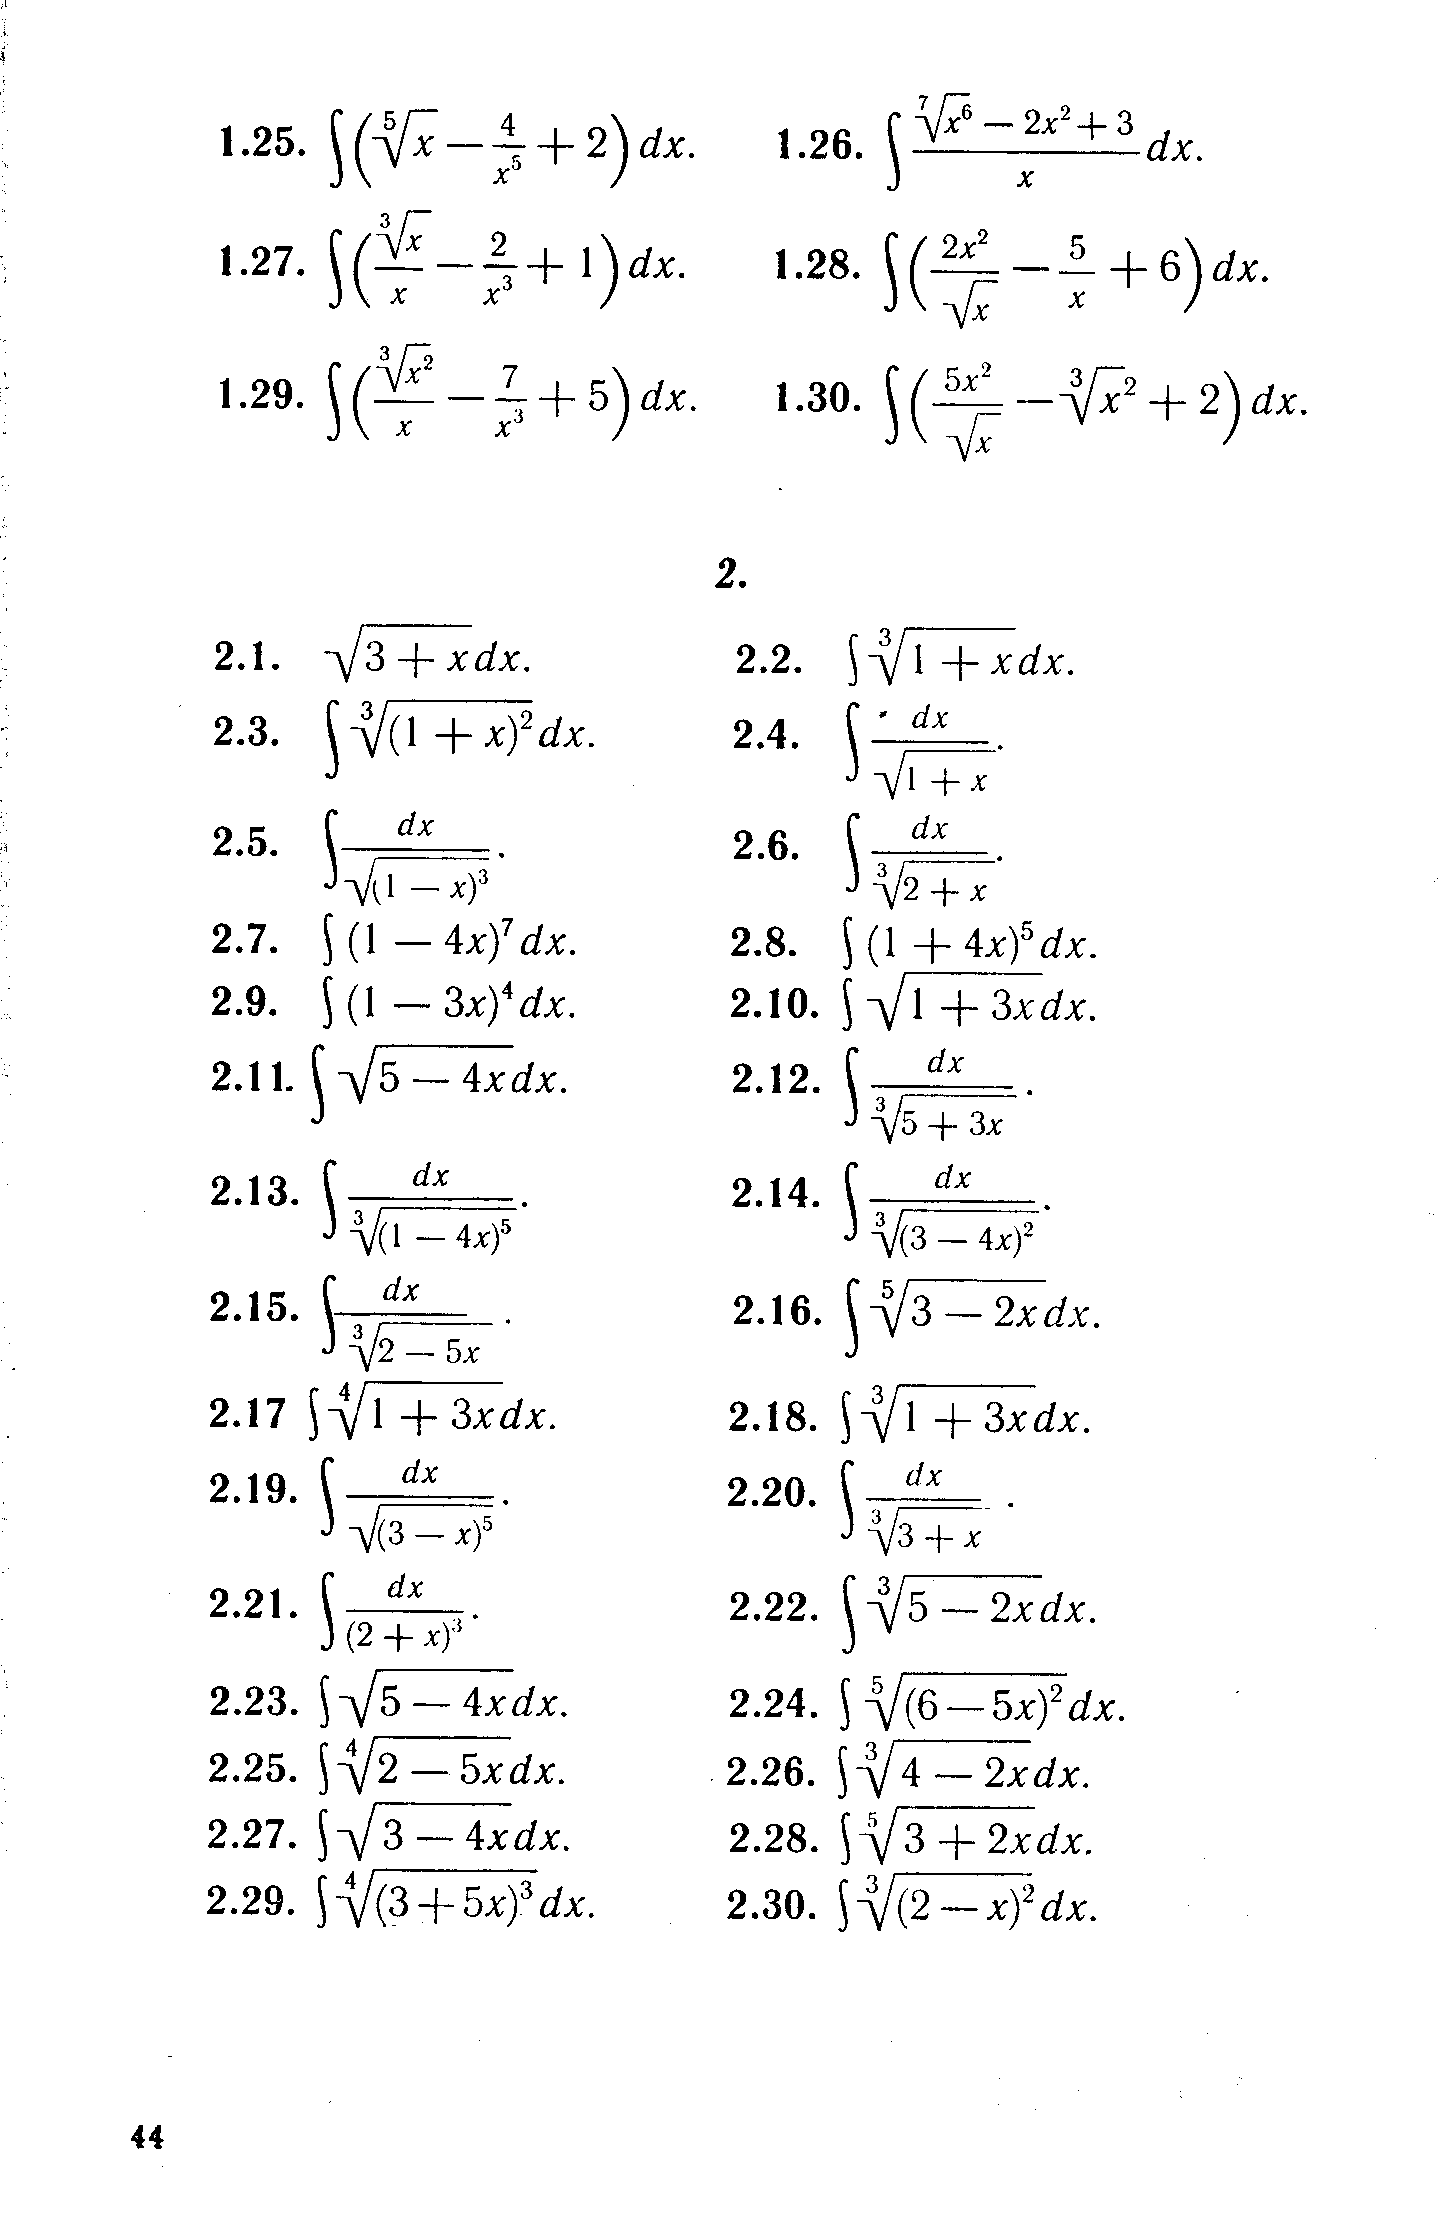 1.25. ∫(⁵√x − 4/x⁵ + 2)dx. 1.26. ∫ (⁷√x⁶ − 2x² + 3)/x dx.
1.27. ∫(³√x/x − 2/x³ + 1)dx. 1.28. ∫(2x²/√x − 5/x + 6)dx.
1.29. ∫(³√x²/x − 7/x³ + 5)dx. 1.30. ∫(5x²/√x − ³√x² + 2)dx.
2.
2.1. √(3 + x)dx. 2.2. ∫ ³√(1 + x)dx.
2.3. ∫ ³√((1 + x)²)dx. 2.4. ∫ dx/√(1 + x).
2.5. ∫ dx/√((1 − x)³). 2.6. ∫ dx/³√(2 + x).
2.7. ∫ (1 − 4x)⁷dx. 2.8. ∫ (1 + 4x)⁵dx.
2.9. ∫ (1 − 3x)⁴dx. 2.10. ∫ √(1 + 3x)dx.
2.11. ∫ √(5 − 4x)dx. 2.12. ∫ dx/³√(5 + 3x).
2.13. ∫ dx/³√((1 − 4x)⁵). 2.14. ∫ dx/³√((3 − 4x)²).
2.15. ∫ dx/³√(2 − 5x). 2.16. ∫ ⁵√(3 − 2x)dx.
2.17 ∫ ⁴√(1 + 3x)dx. 2.18. ∫ ³√(1 + 3x)dx.
2.19. ∫ dx/√((3 − x)⁵). 2.20. ∫ dx/³√(3 + x).
2.21. ∫ dx/(2 + x)³. 2.22. ∫ ³√(5 − 2x)dx.
2.23. ∫ √(5 − 4x)dx. 2.24. ∫ ⁵√((6 − 5x)²)dx.
2.25. ∫ ⁴√(2 − 5x)dx. 2.26. ∫ ³√(4 − 2x)dx.
2.27. ∫ √(3 − 4x)dx. 2.28. ∫ ⁵√(3 + 2x)dx.
2.29. ∫ ⁴√((3 + 5x)³)dx. 2.30. ∫ ³√((2 − x)²)dx.
44